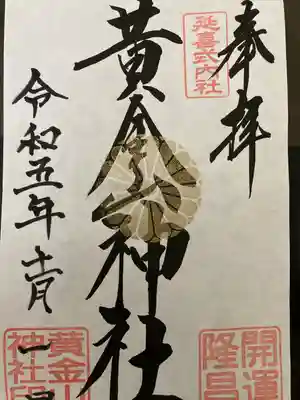 奉拝
開運
隆昌
延喜式内社
黄金山神社
令和五年
黄金山
神社印